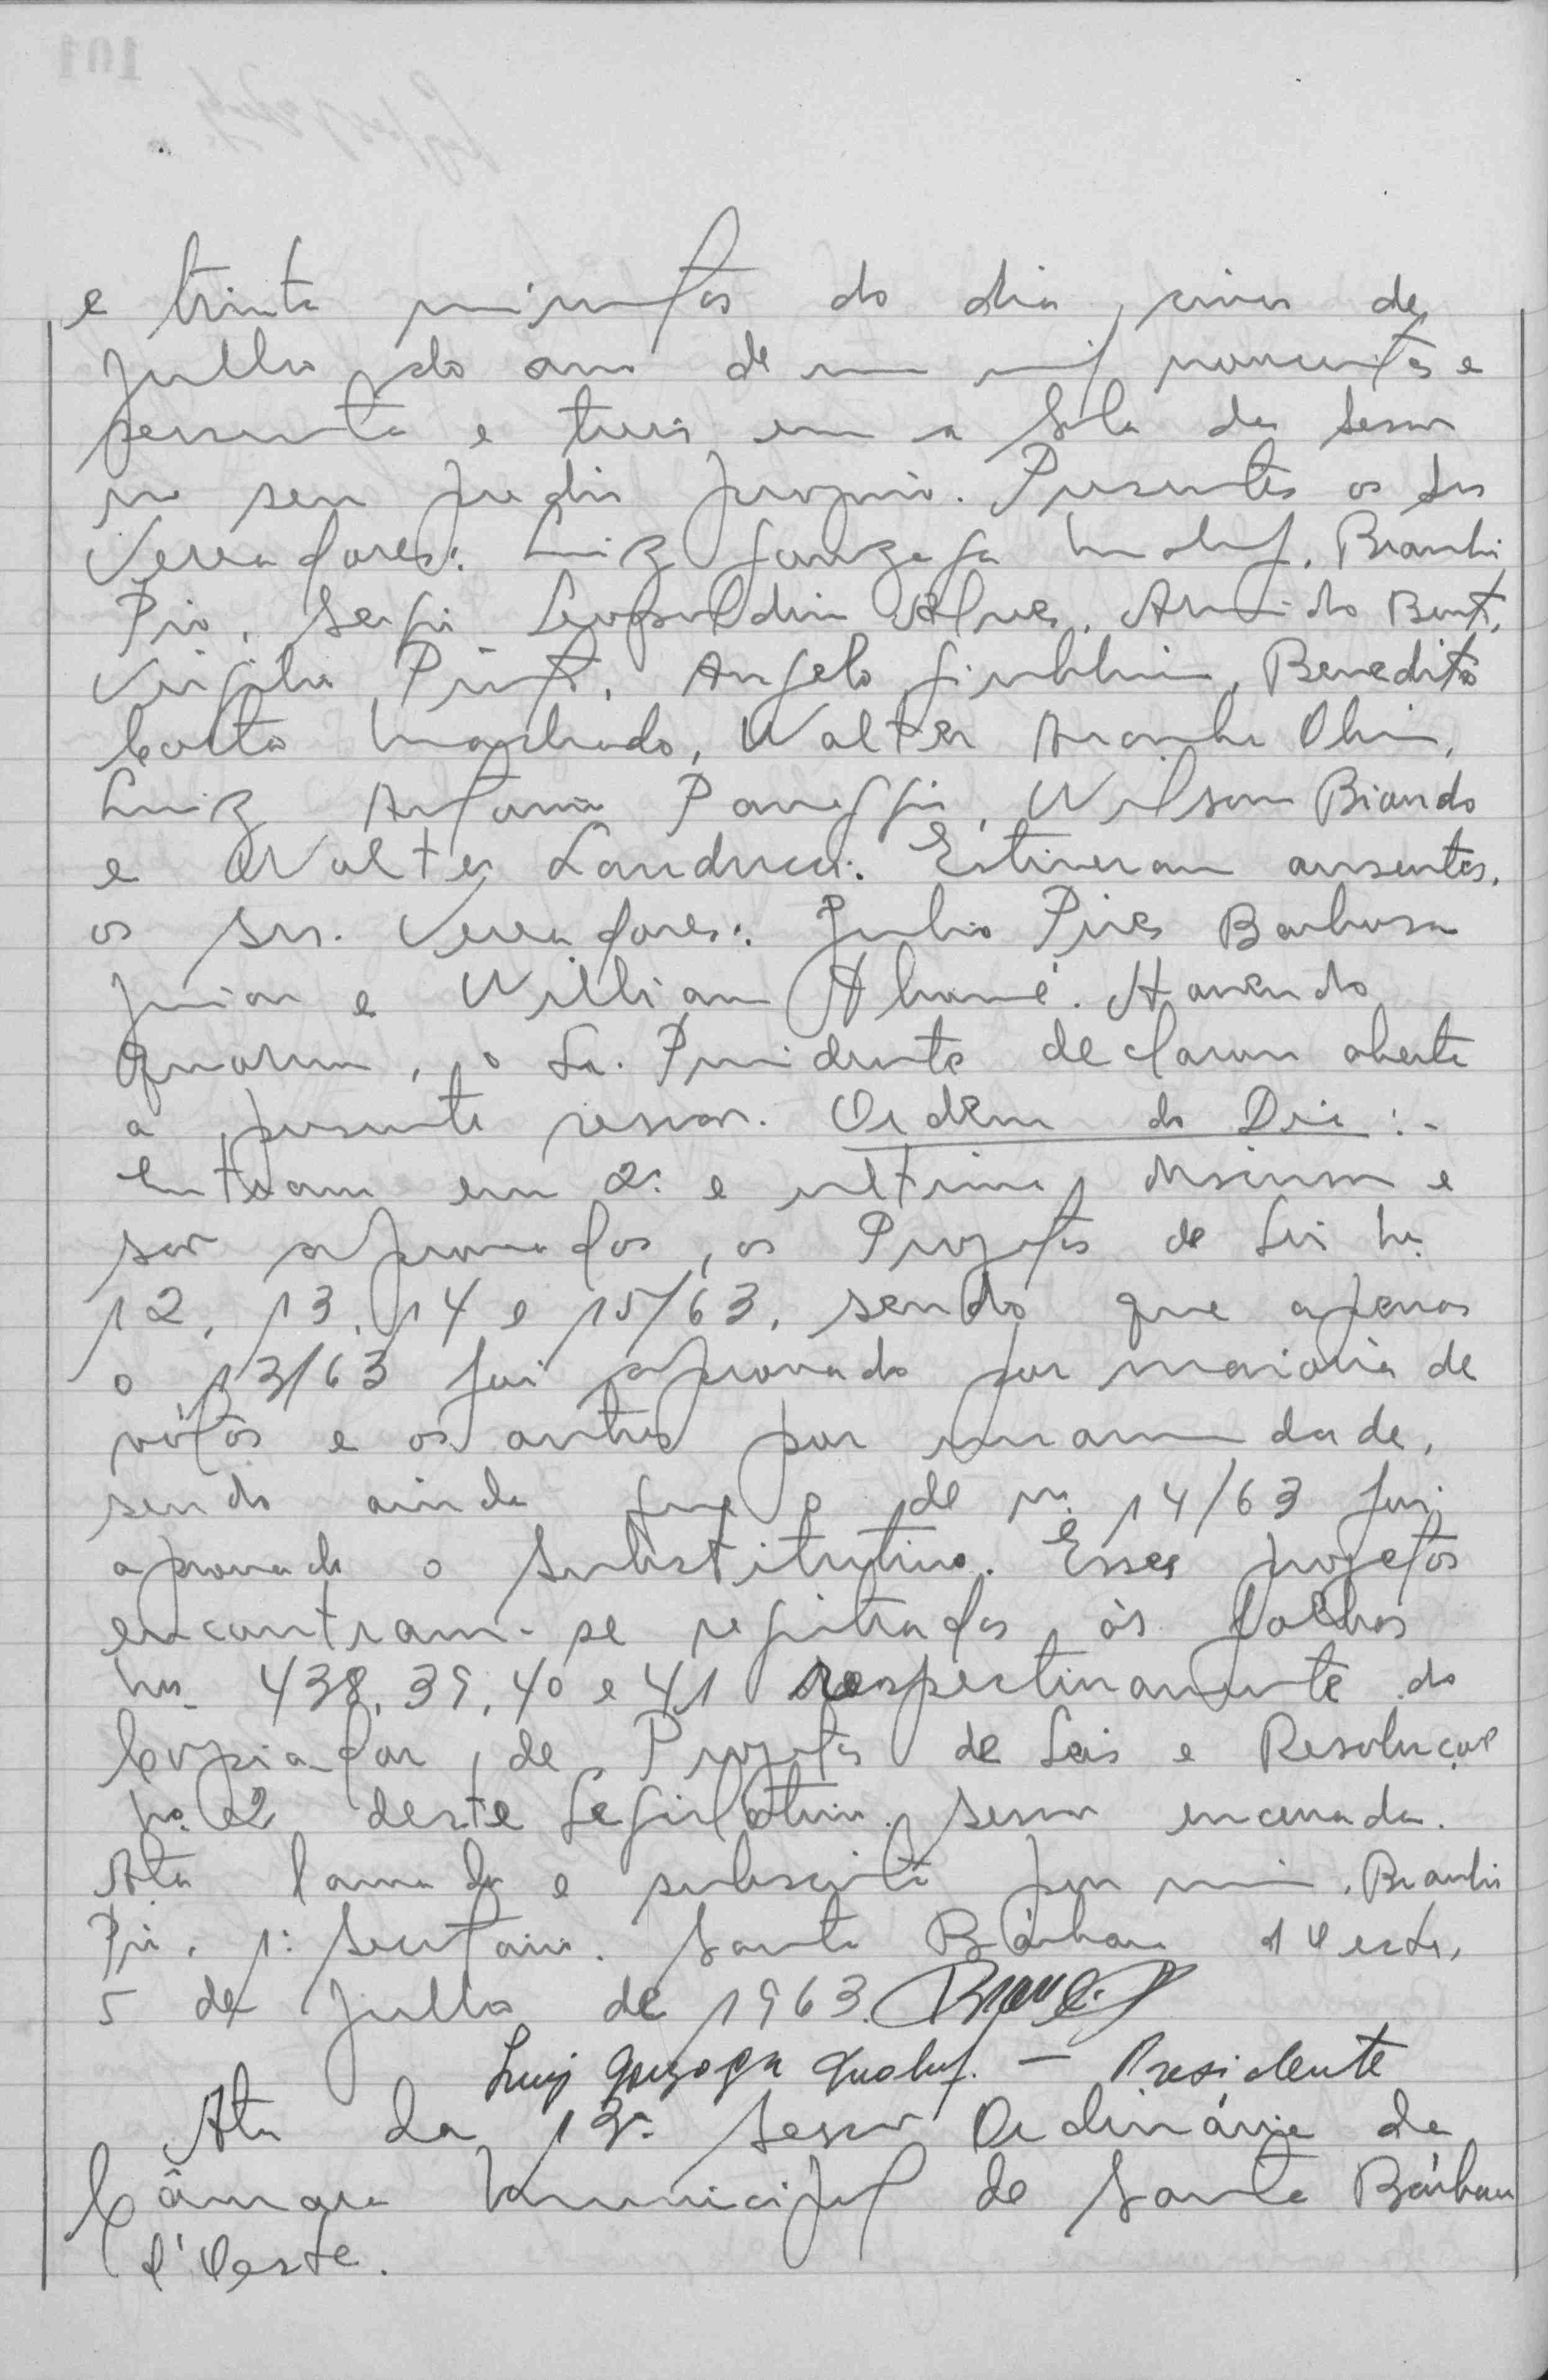 e trinta minutos do dia cinco de
Julho do ano de um mil novecentos e
sessenta e tres, em a Sala da Sessão
no seu predio proprio. Presentes os Srs
Vereadores: Luiz Gonzaga Maluf, Braulio
Pio, Sergio Leopoldino Alves, Arnaldo Bent.
Virgilio Pinto, Angelo Giubbina, Benedito
Costa Machado, Walter Aranha Olim,
Luiz Antonio Panaggio, Wilson Biondo
e Walter Landucci. Estiveram ausentes,
os Srs. Vereadores: Julio Pires Barbosa
Junior e William Ahumé. Havendo
quorum, o Sr. Presidente declarou aberta
a presente sessão. Ordem do Dia :-
Entram em 2ª e ultima discussão e
são aprovados, os Projetos de Lei Ns.
12, 13, 14 e 15/63, sendo que apenas
o 13/63 foi aprovado por maioria de
votos e os outros por unanimidade,
sendo ainda que o de n. 14/63 foi
aprovado o Substitutivo. Esses projetos
encontram-se registrados, às folhas
ns. 438, 39, 40 e 41 respectivamente do
Copiador, de Projetos de Leis e Resoluções
nº 2 deste Legislativo. Sessão encerrada.
Ata lavrada e subscrita por mim, Braulio
Pio, 1º Secretario. Santa Bárbara d'Oeste,
5 de Julho de 1963.
Luiz Gonzaga Maluf. — Presidente
Ata da 13ª Sessão Ordinária da
Câmara Municipal de Santa Bárbara
d'Oeste.